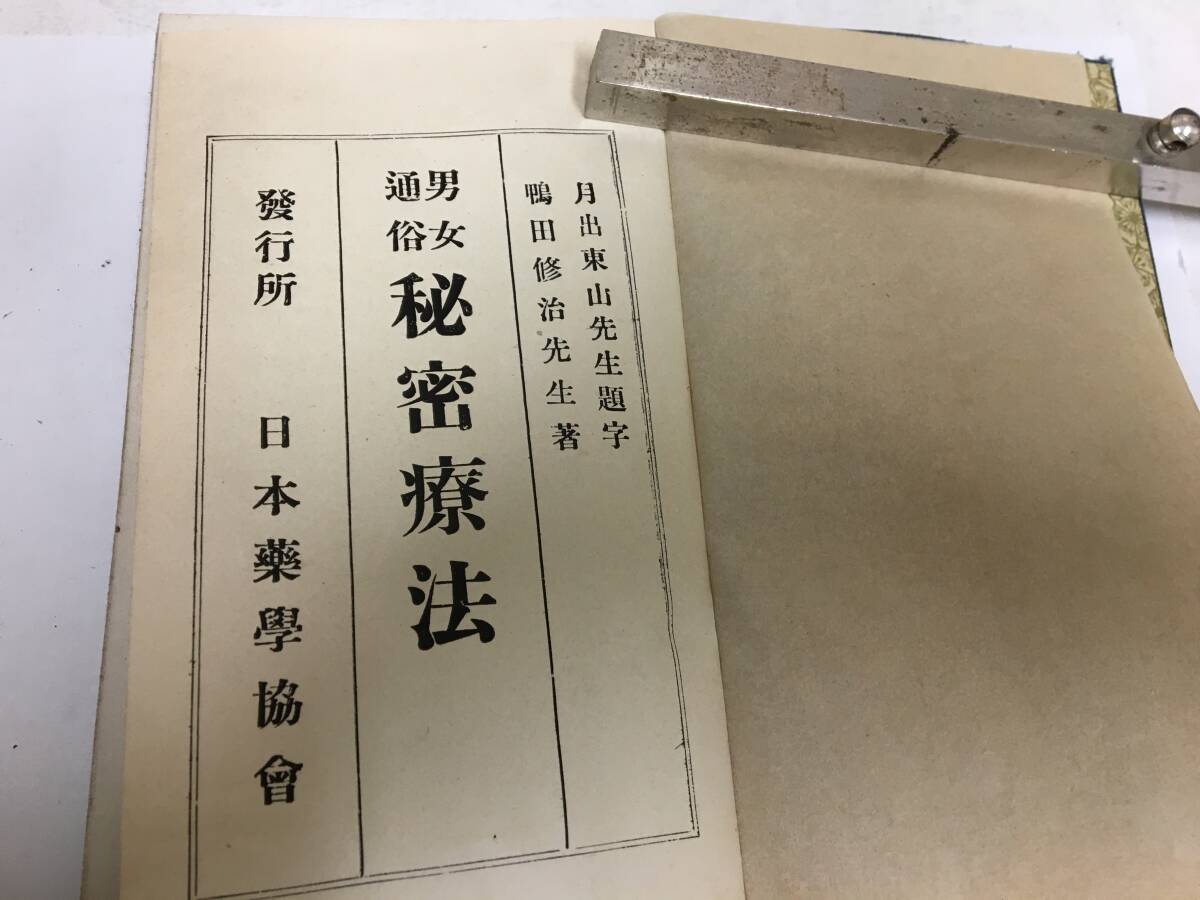 月出東山先生題字
鴨田修治先生著
男女
通俗
秘密療法
發行所 日本藥學協會